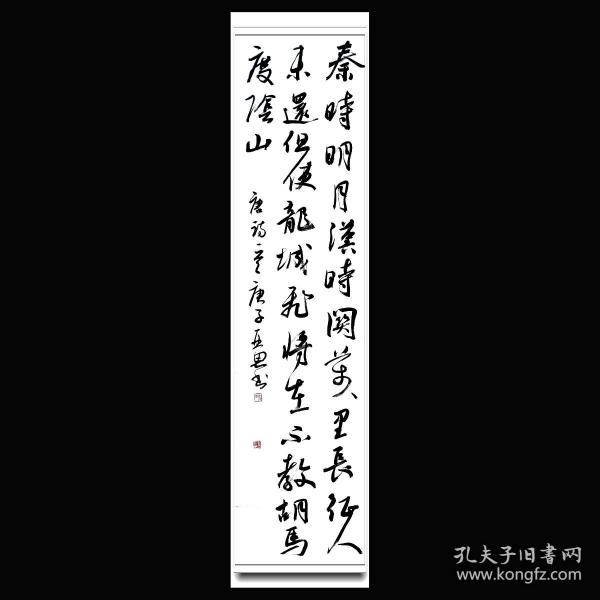 秦時明月漢時関萬里長征人
未還但使龍城飛將在不教胡馬
度陰山
唐詩一首庚子亞思书
孔夫子旧書网
www.kongfz.com